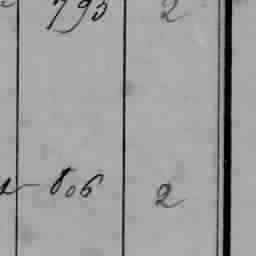 793 2
806 2